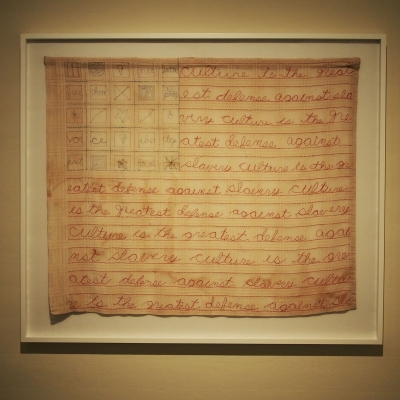 culture is the great
est defense against sla
very culture is the gre
atest defense against
slavery culture is the gr
eatest defense against slavery culture
is the greatest defense against slavery
culture is the greatest defense agai
nst slavery culture is the gre
atest defense against slavery cultur
e is the greatest defense against sla